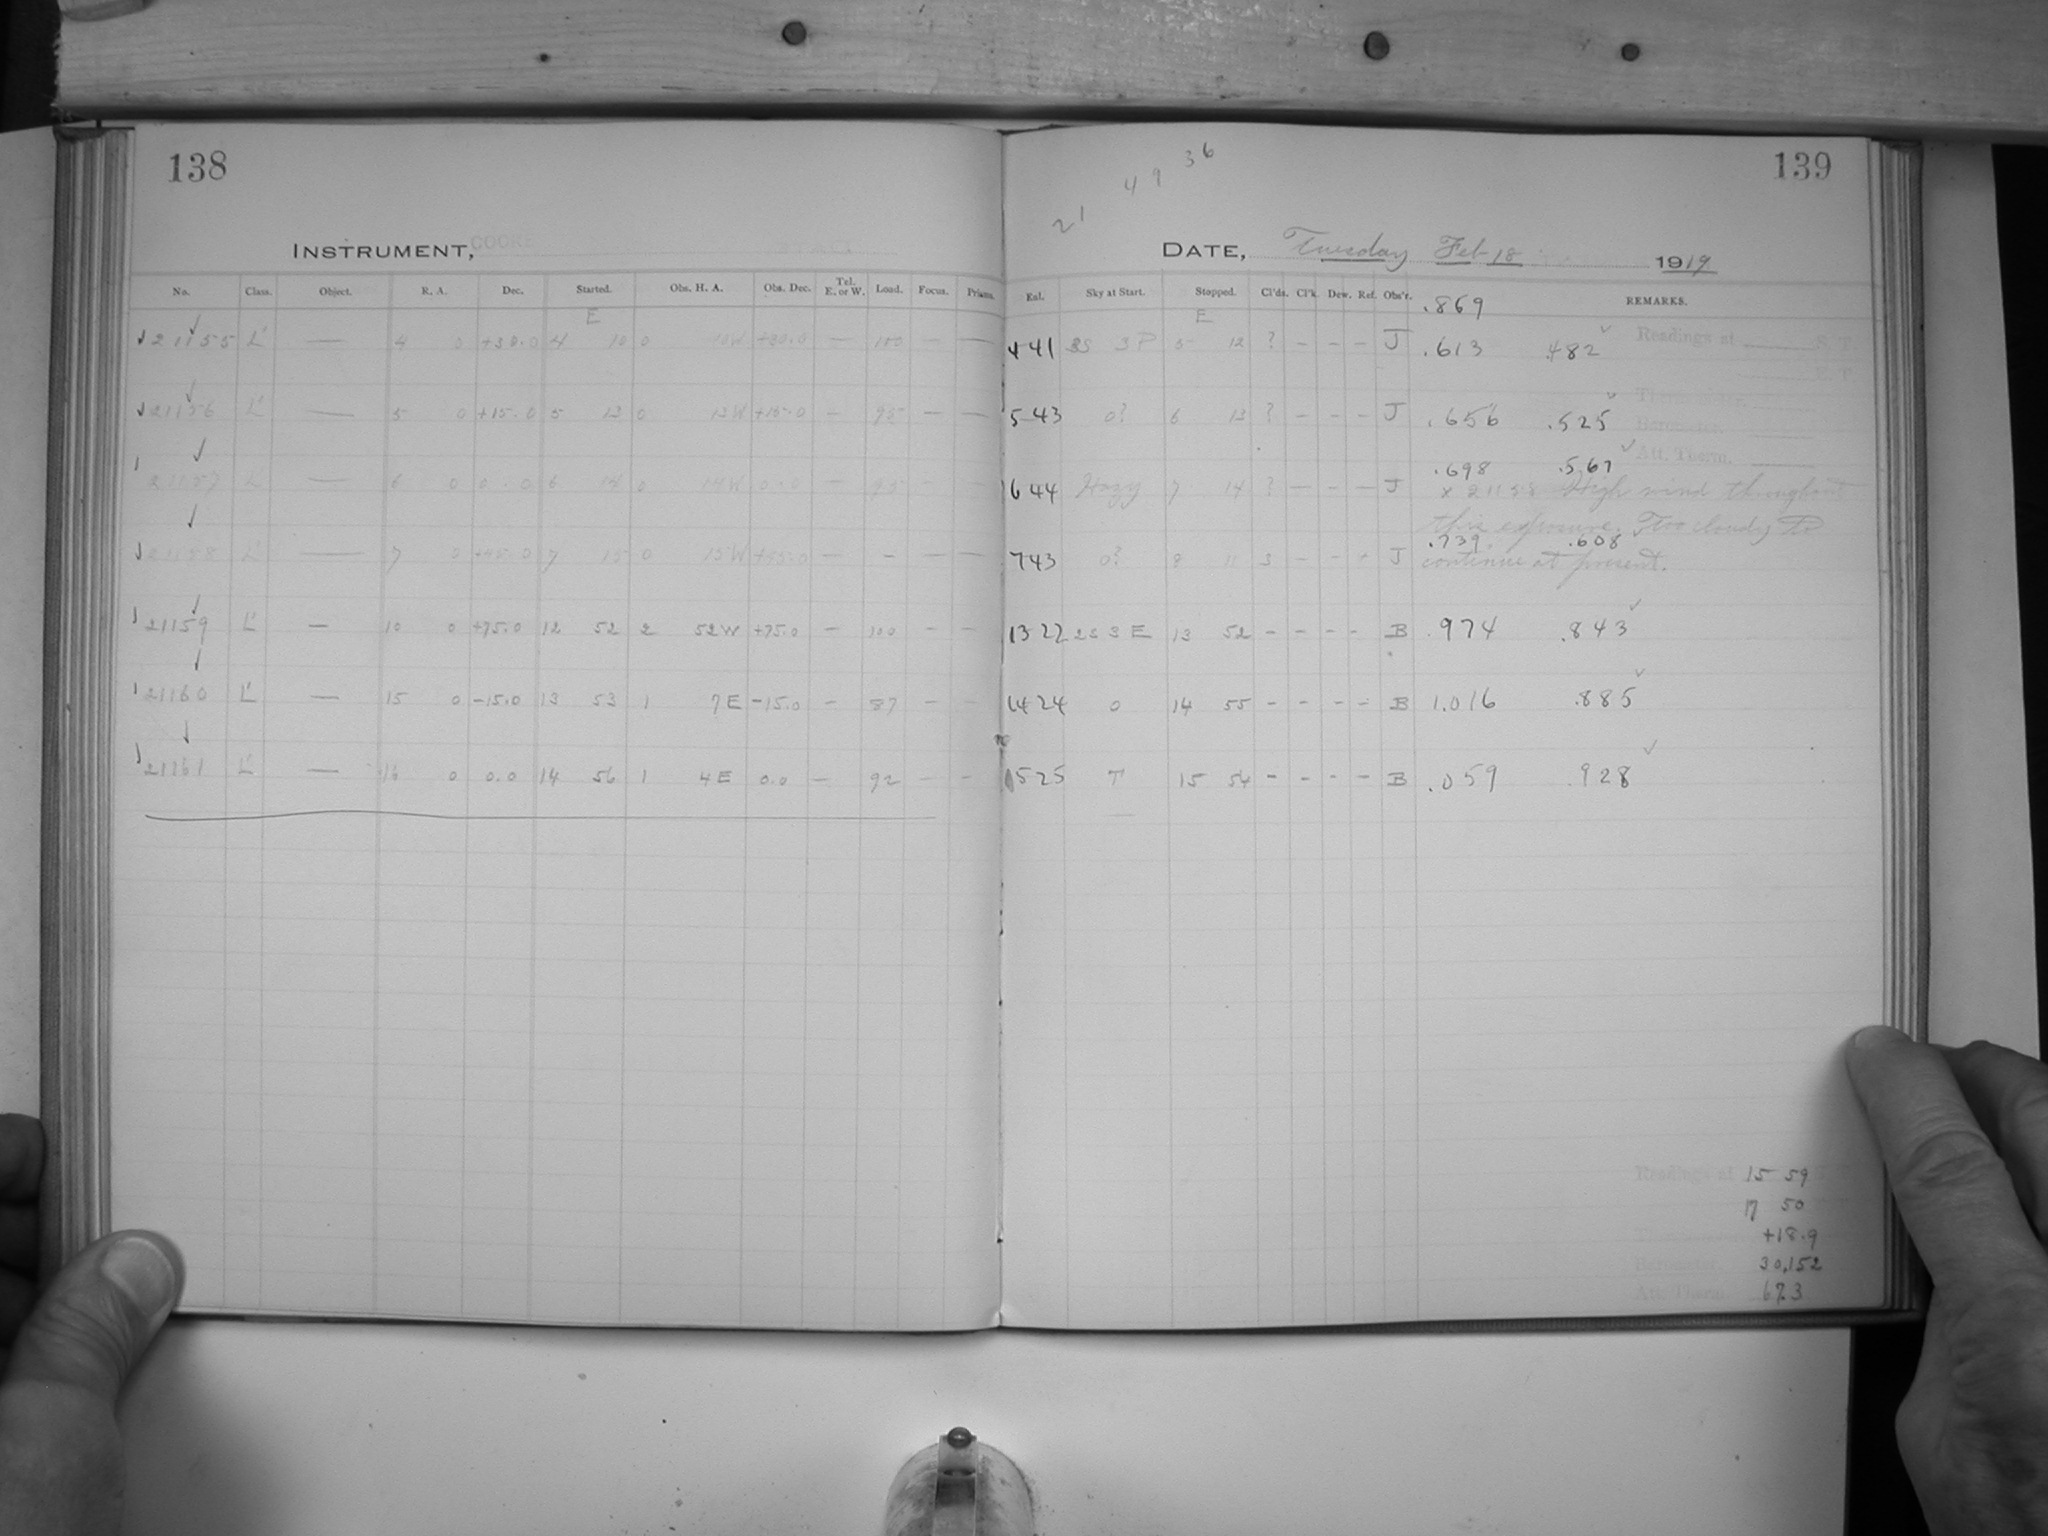 138
INSTRUMENT, COOKE
No. Class. Object. R. A. Dec. Started. Obs. H. A. Obs. Dec. Tel. E. or W. Load. Focus. Prisms.
E
21155 L' — 4 0 +30.0 4 10 0 10W +30.0 — 100 — —
21156 L' — 5 0 +15.0 5 13 0 13W +15.0 — 95 — —
21157 L' — 6 0 0.0 6 14 0 14W 0.0 — 95 — —
21158 L' — 7 0 7 15 0 15W — — — —
21159 L' — 10 0 +75.0 12 52 2 52W +75.0 — 100 — —
21160 L' — 15 0 -15.0 13 53 1 7E -15.0 — 87 — —
21161 L' — 16 0 0.0 14 56 1 4E 0.0 — 92 — —
139
36
49
21
DATE, Tuesday Feb 18 1919
Exl. Sky at Start. Stopped. Cl'ds. Cl'k. Dew. Ref. Obs'r. .869 REMARKS.
E
4 41 3P 5 12 ? — — — J .613 .482 Readings at S. T.
5 43 0? 6 13 ? — — — J .656 .525
Att. Therm.
.698 .567
6 44 Hazy 7 14 ? — — — J x 21158 High wind throughout
this exposure. Too cloudy to
.739 .608
7 43 0? 8 11 3 — — — J continue at present.
13 22 2S 3E 13 52 - - - - B .974 .843
14 24 0 14 55 - - - - B 1.016 .885
15 25 T 15 54 - - - - B .059 .928
Readings at 15 59
17 50
+18.9
Barometer 30.152
Att. Therm. 67.3